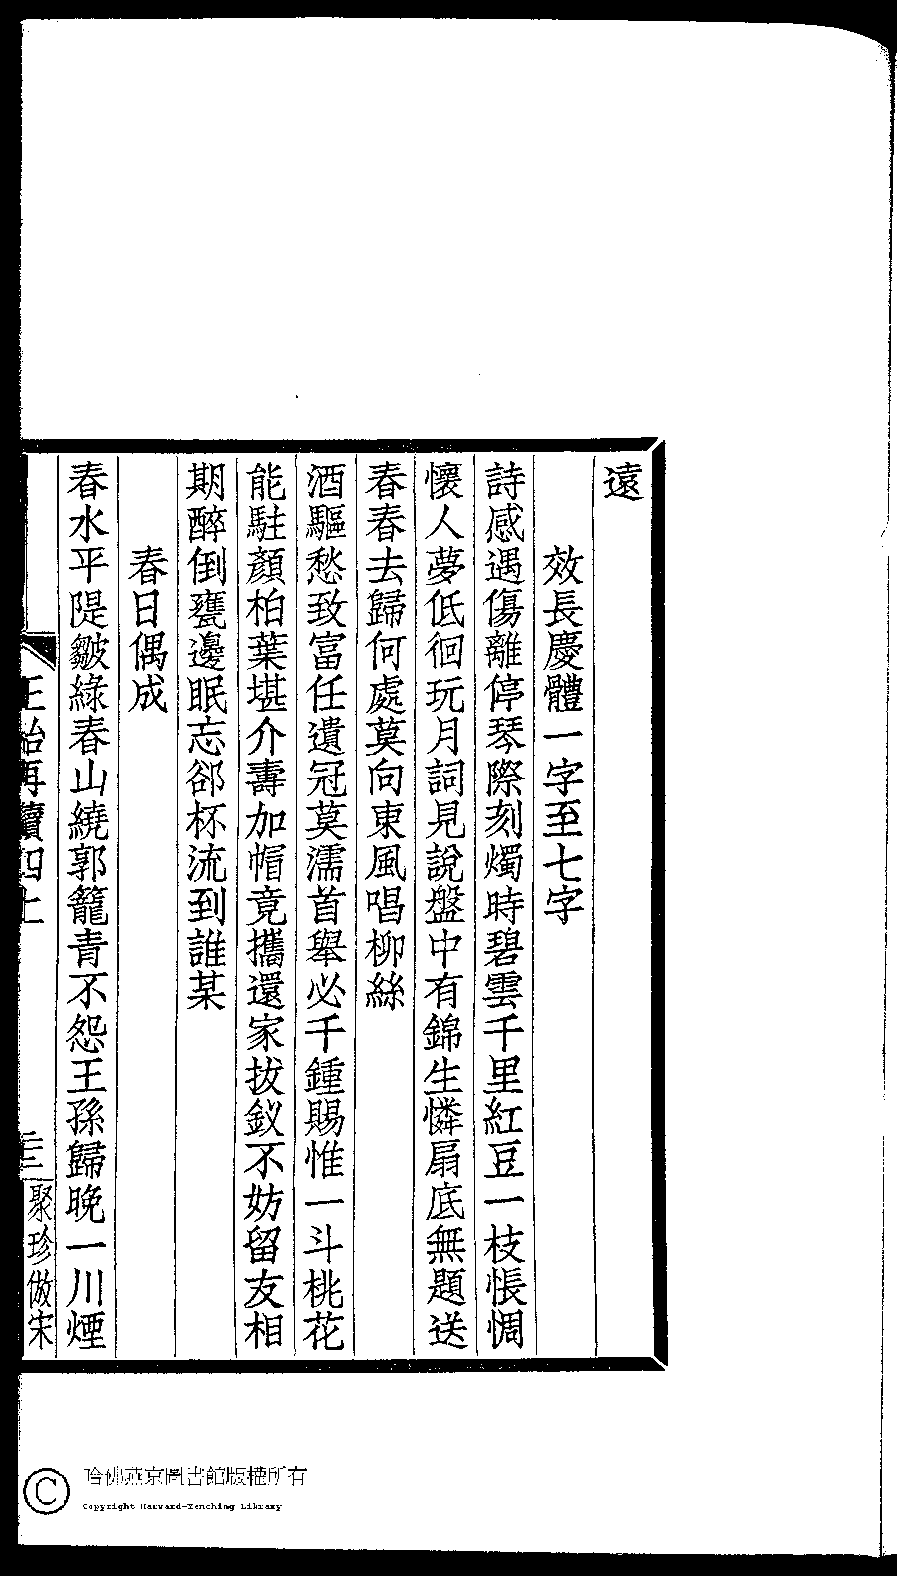 遠
效長慶體一字至七字
詩感遇傷離停琴際刻燭時碧雲千里紅豆一枝悵惆
懷人夢低徊玩月詞見說盤中有錦生憐扇底無題送
春春去歸何處莫向東風唱柳絲
酒驅愁致富任遺冠莫濡首舉必千鍾賜惟一斗桃花
能駐顏柏葉堪介壽加帽竟攜還家拔釵不妨留友相
期醉倒甕邊眠忘郤杯流到誰某
春日偶成
春水平隄皺綠春山繞郭籠青不怨王孫歸晚一川煙
正始再續四上
聚珍倣宋
哈佛燕京圖書館版權所有
Copyright Harvard-Yenching Library